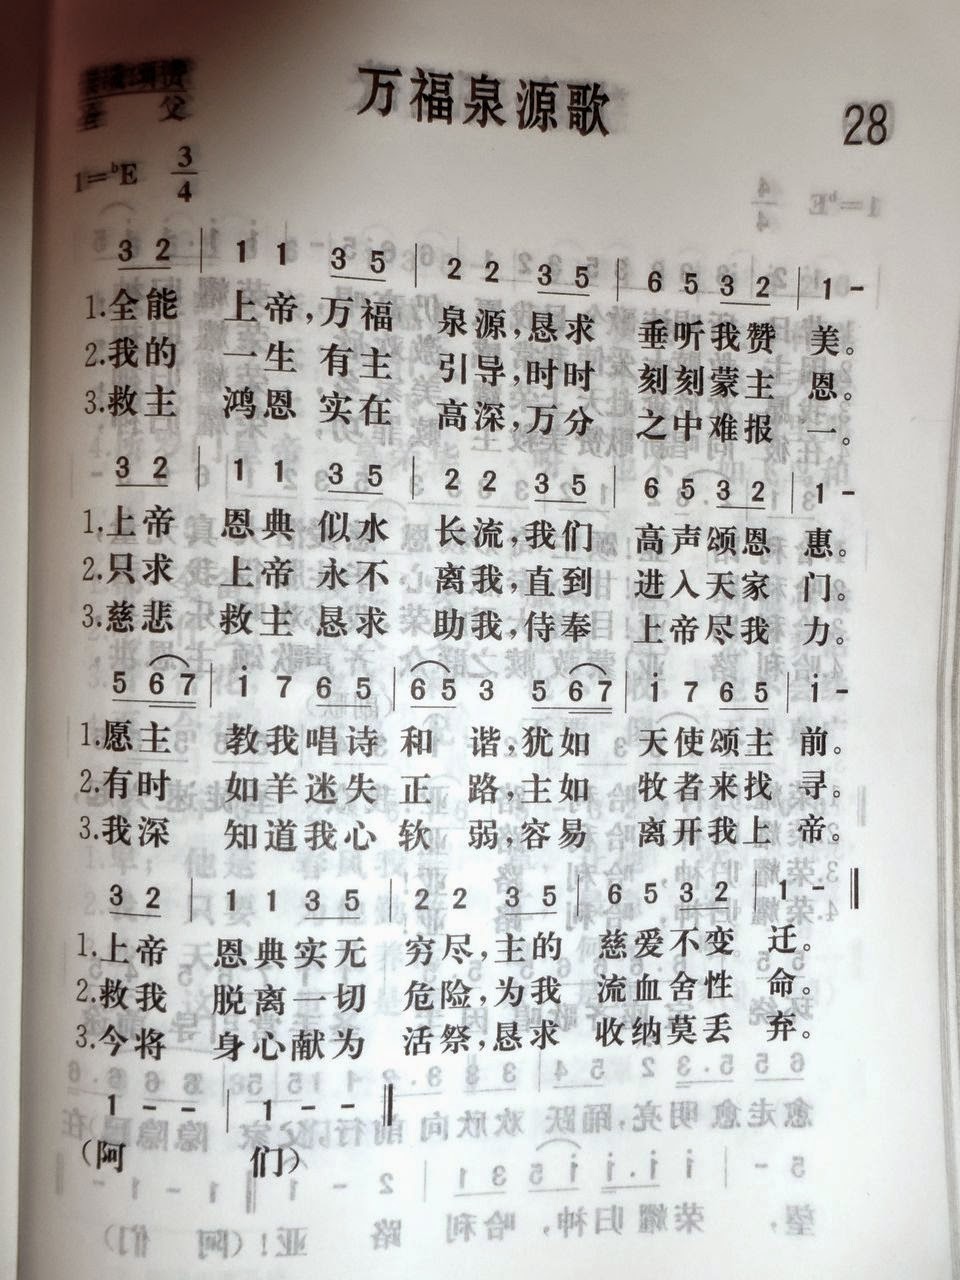 圣父
万福泉源歌
28
1=ᵇE 3/4
3 2 | 1 1 3 5 | 2 2 3 5 | 6 5 3 2 | 1 -
1.全能 上帝,万福 泉源,恳求 垂听我赞 美。
2.我的 一生 有主 引导,时时 刻刻蒙主 恩。
3.救主 鸿恩 实在 高深,万分 之中难报 一。
3 2 | 1 1 3 5 | 2 2 3 5 | 6 5 3 2 | 1 -
1.上帝 恩典 似水 长流,我们 高声颂恩 惠。
2.只求 上帝 永不 离我,直到 进入天家 门。
3.慈悲 救主 恳求 助我,侍奉 上帝尽我 力。
5 6 7 | i 7 6 5 | 6 5 3 5 6 7 | i 7 6 5 | i -
1.愿主 教我唱诗 和 谐,犹如 天使颂主 前。
2.有时 如羊迷失 正 路,主如 牧者来找 寻。
3.我深 知道我心 软 弱,容易 离开我上 帝。
3 2 | 1 1 3 5 | 2 2 3 5 | 6 5 3 2 | 1 - ‖
1.上帝 恩典实无 穷尽,主的 慈爱不变 迁。
2.救我 脱离一切 危险,为我 流血舍性 命。
3.今将 身心献为 活祭,恳求 收纳莫丢 弃。
1 - - | 1 - - ‖
(阿 们)